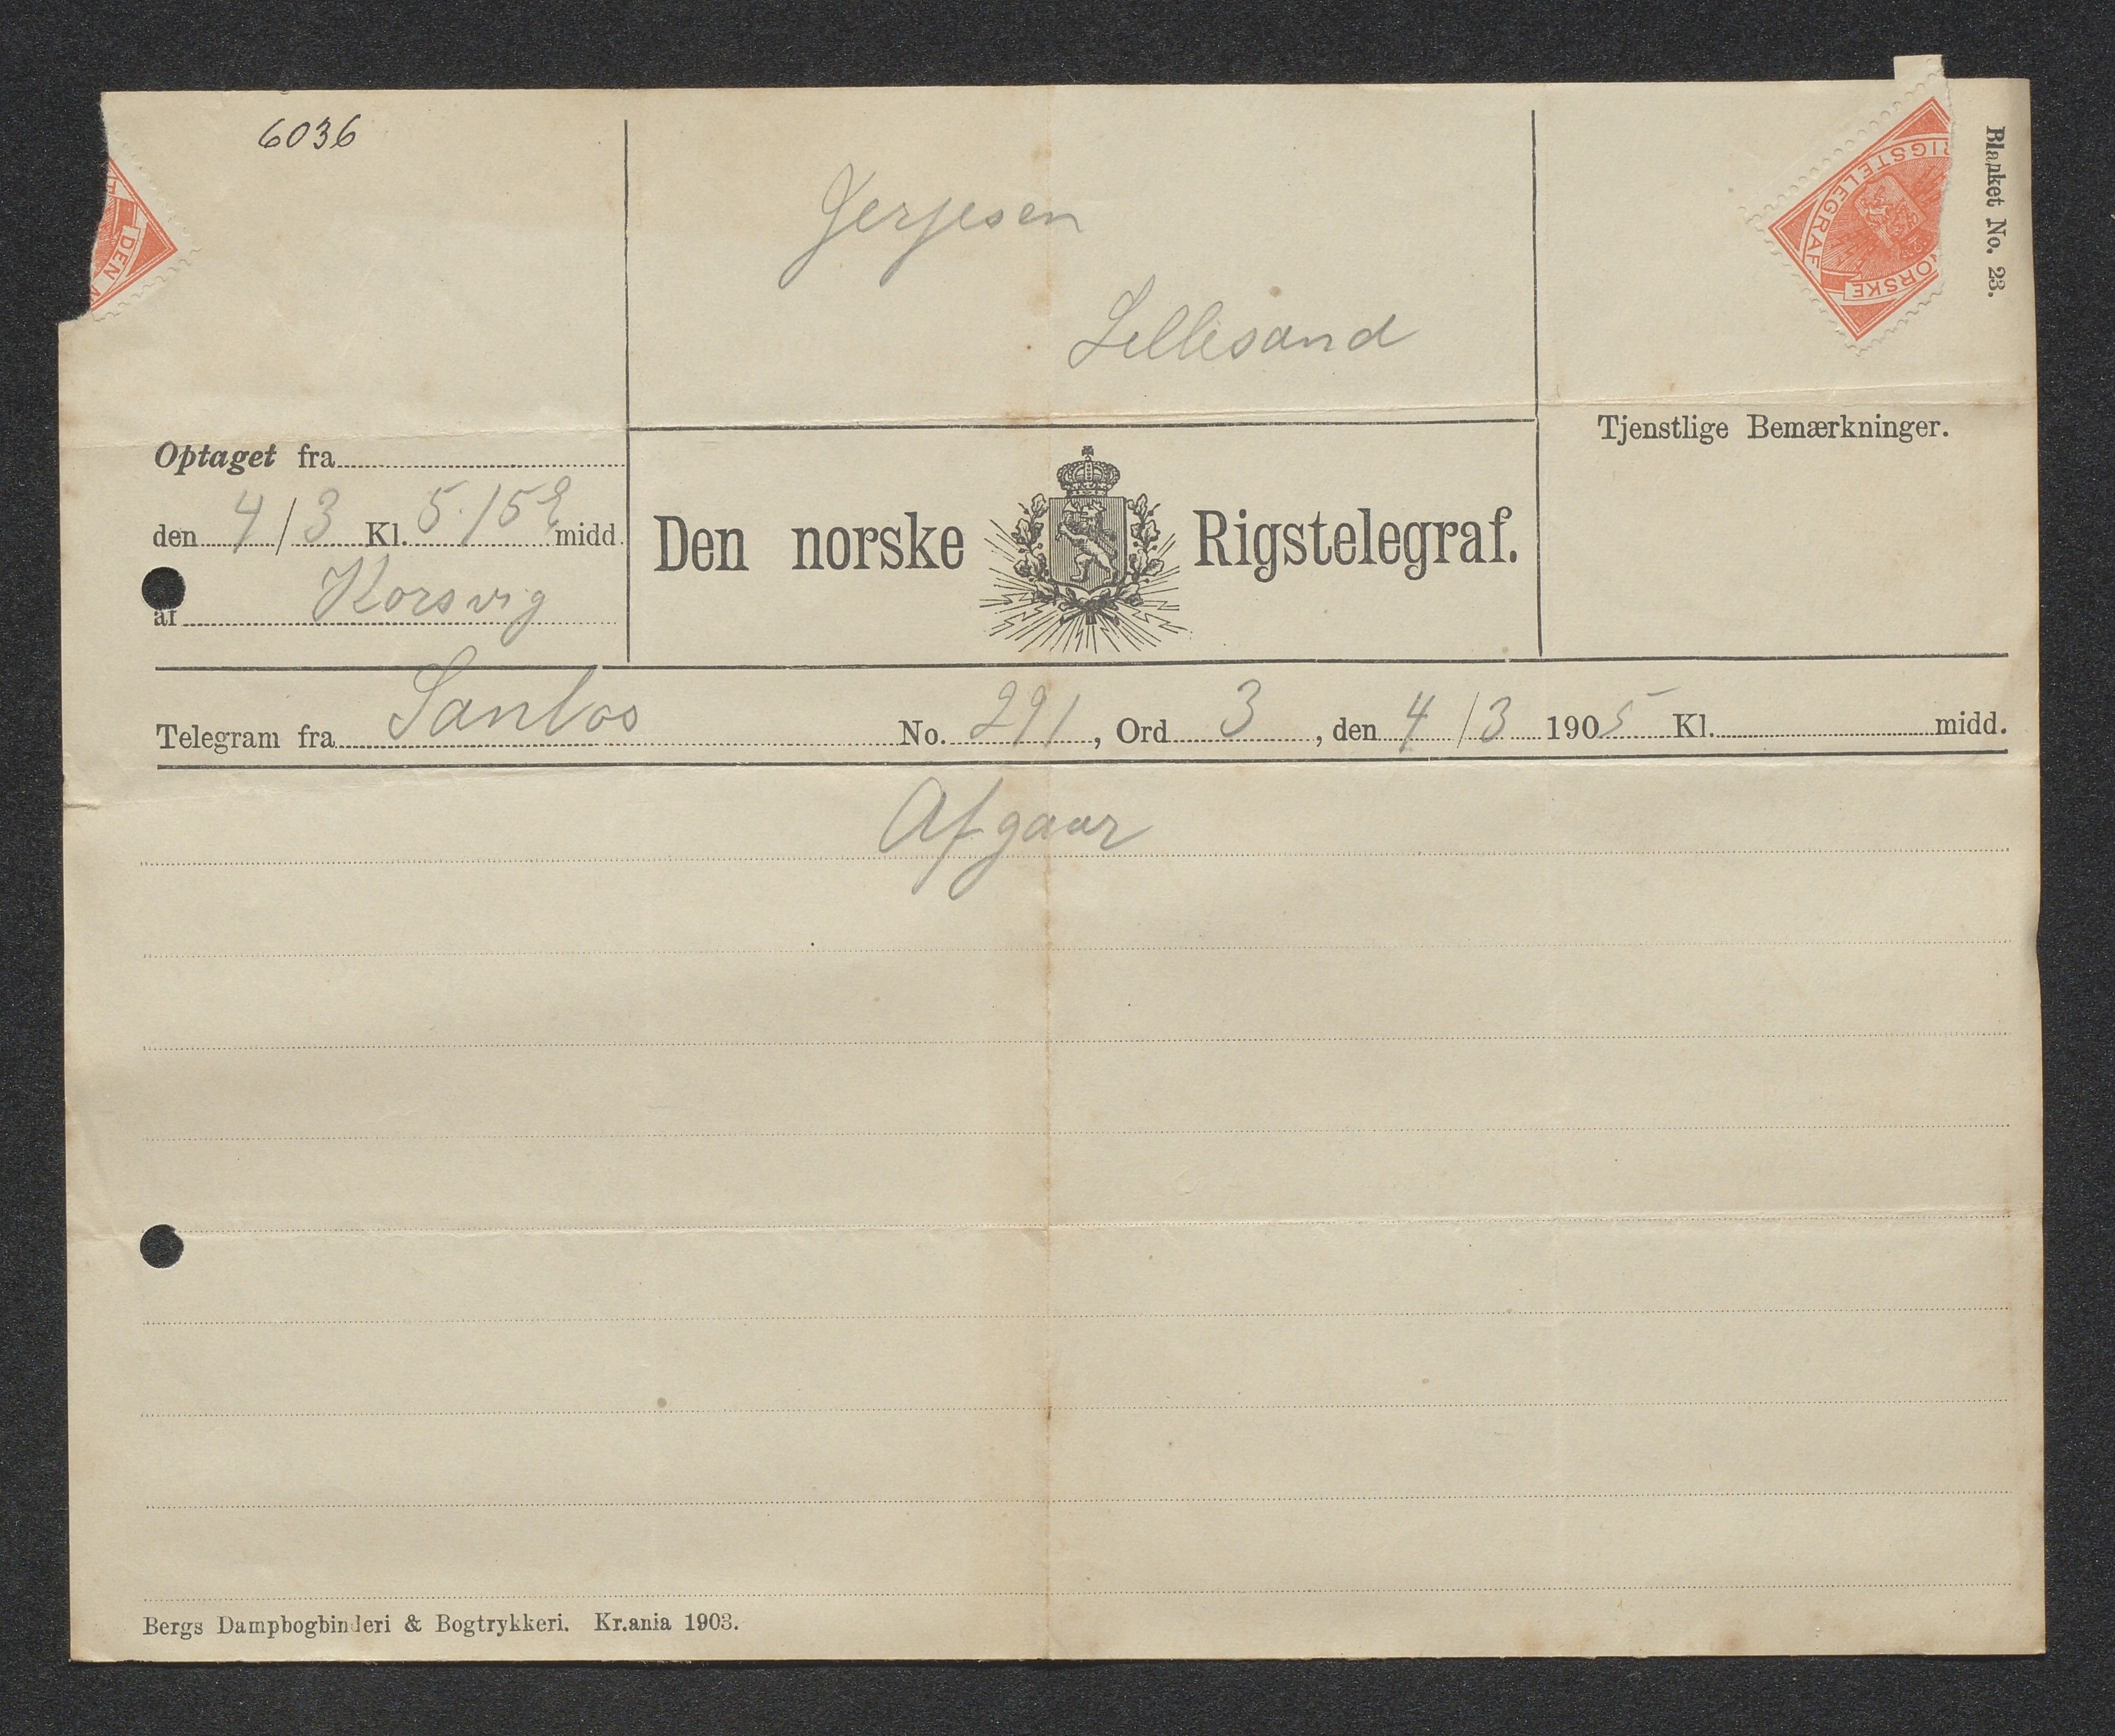 6036
Jerpesen
Lillesand
Blanket No. 23.
DEN N
RIGSTELEGRAF
NORSKE
Tjenstlige Bemærkninger.
Optaget fra
den 4/3 Kl. 5.15 E midd.
af Korsvig
Den norske Rigstelegraf.
Telegram fra Santos No. 291, Ord 3, den 4/3 1905 Kl. midd.
Afgaar
Bergs Dampbogbinderi & Bogtrykkeri. Kr.ania 1903.